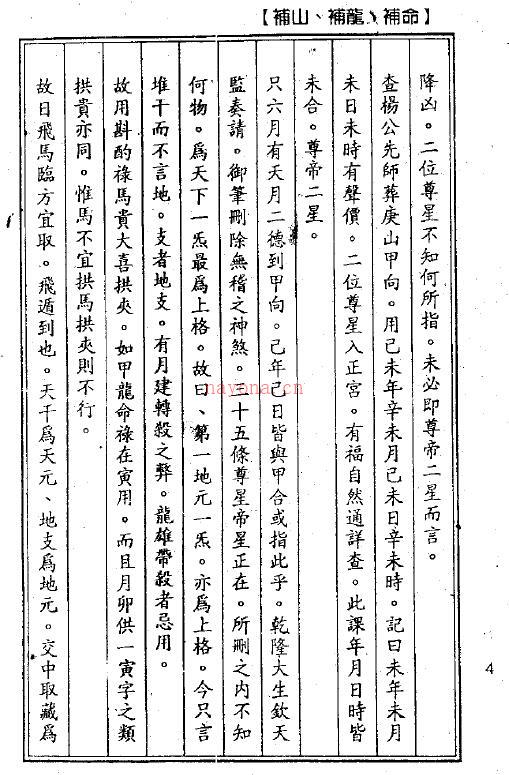 【補山、補龍、補命】
降凶。二位尊星不知何所指。未必即尊帝二星而言。
查楊公先師葬庚山甲向。用己未年辛未月己未日辛未時。記曰未年未月
未日未時有聲價。二位尊星入正宮。有福自然通詳查。此課年月日時皆
未合。尊帝二星。
只六月有天月二德到甲向。己年己日皆與甲合或指此乎。乾隆大生欽天
監奏請。御筆刪除無稽之神煞。三十五條尊星帝星正在。所刪之內不知
何物。爲天下一炁最爲上格。故曰、第一地元一炁。亦爲上格。今只言
堆干而不言地。支者地支。有月建轉殺之弊。龍雄帶殺者忌用。
故用斟酌祿馬貴大喜拱夾。如甲龍命祿在寅用。而且月卯供一寅字之類
拱貴亦同。惟馬不宜拱馬拱夾則不行。
故日飛馬臨方宜取。飛遁到也。天干爲天元、地支爲地元。交中取藏爲
4
nayona.cn